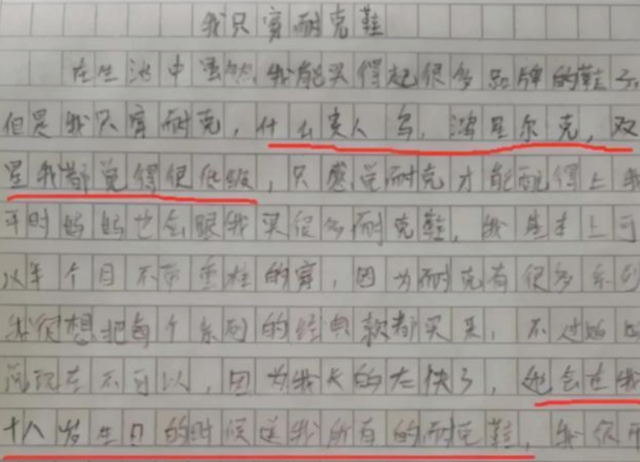 我只穿耐克鞋
在生活中虽然我能买得起很多品牌的鞋子
但是我只穿耐克,什么贵人鸟,鸿星尔克,双
星我都觉得很低级,只感觉耐克才能配得上我
平时妈妈也会跟我买很多耐克鞋,我基本上可
以半个月不带重样的穿,因为耐克有很多系列
我很想把每个系列的经典款都买来,不过妈妈
说现在不可以,因为我长的太快了,她会在我
十八岁生日的时候送我所有的耐克鞋,我很